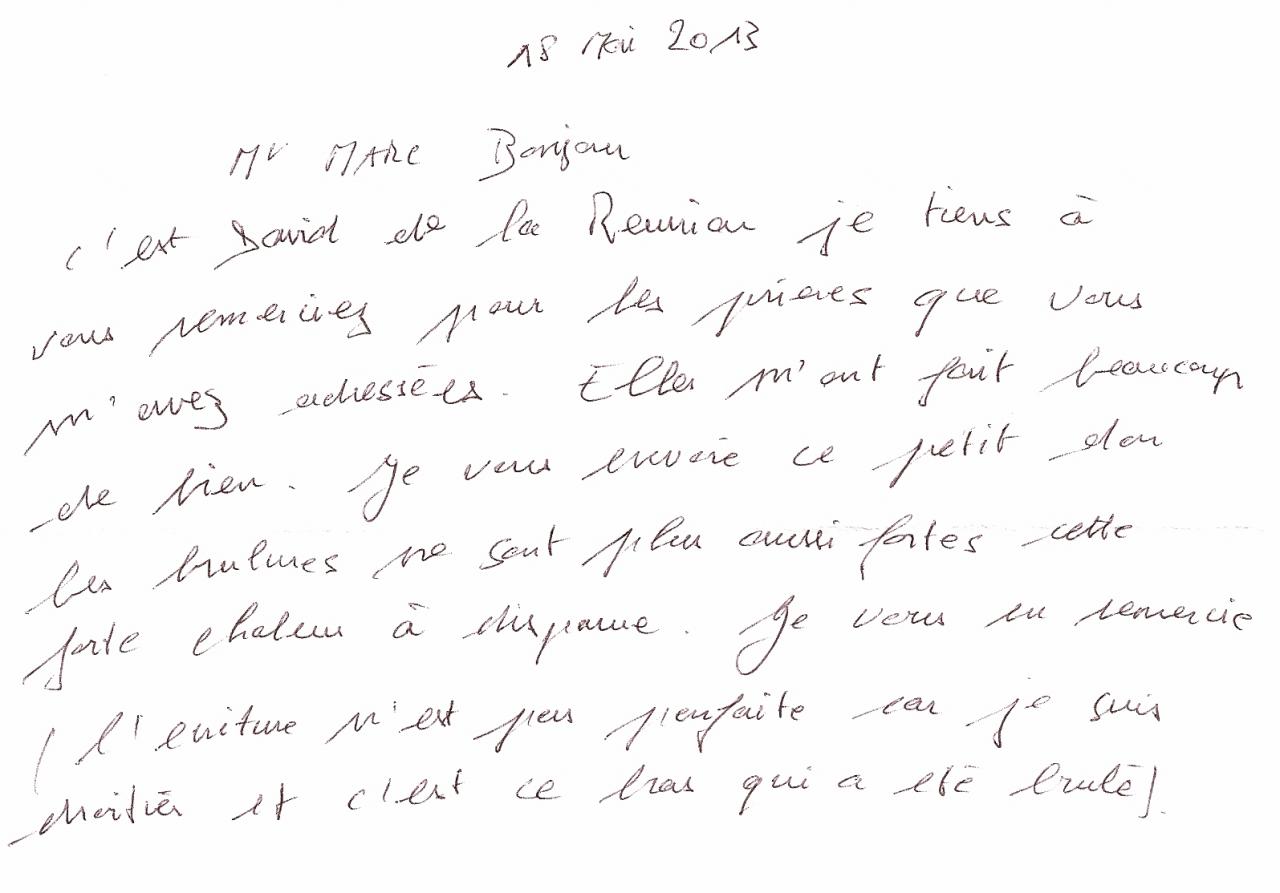 18 Mai 2013
Mr MARC Bonjour
c'est David de la Reunion je tiens à
vous remerciez pour les prieres que vous
m'avez adressées. Elles m'ont fait beaucoup
de bien. Je vous envoie ce petit don
les brulures ne sont plus aussi fortes cette
forte chaleur à disparue. Je vous en remercie
(l'ecriture n'est pas parfaite car je suis
droitier et c'est ce bras qui a eté brulé).